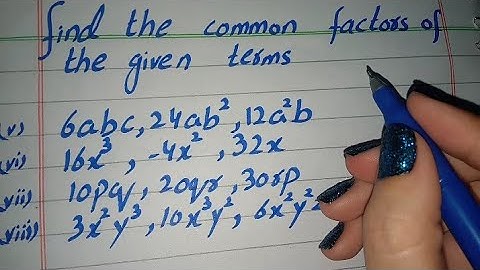 find the common factors of
the given terms
(v) 6abc, 24ab², 12a²b
(vi) 16x³, -4x², 32x
(vii) 10pq, 20qr, 30rp
(viii) 3x²y³, 10x³y², 6x²y²